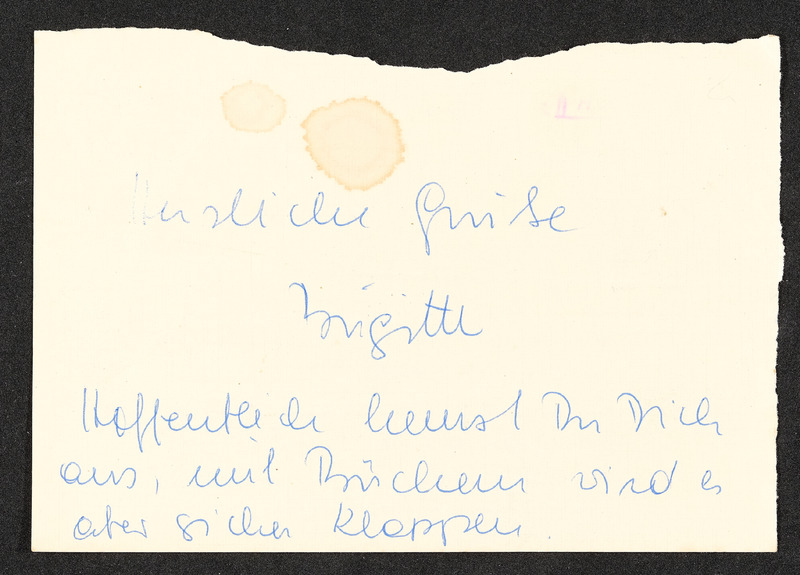 Herzliche Grüße
Brigitte
Hoffentlich kennst Du Dich
aus, mit Büchern wird es
aber sicher klappen